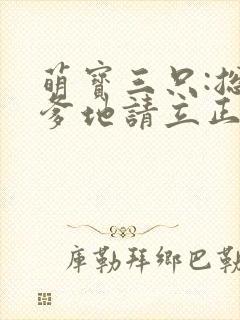 萌寶三只:總
爹地請立正
庫勒拜鄉巴勒